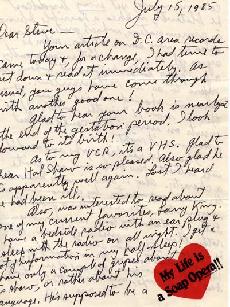 July 15, 1985
Dear Steve —
Your article on D.C. area records
came today & for a change, I had time to
get down & read it immediately. As
usual, you guys have come through
with another good one!
Glad to hear your book is nearly at
the end of the gestation period. I look
forward to its birth!
As to my VCR, it's a VHS. Glad to
hear Hal Shaw is so pleased. Also glad he
is apparently well again. Last I heard
he had been ill.
Also, was interested to read about
one of my current favorites, Larry King.
I have a bedside radio with an ear plug &
sleep with the radio on all night. I get a
lot of information in my half-sleep!
have only a couple of gripes about
his show, or rather about his
language. He's supposed to be a
My Life Is
a Soap Opera!!